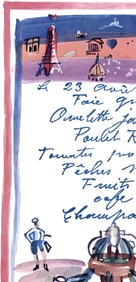 Le 23 Avril
Foie g
Omelette
Poulet
Tomates pro
Pêches
Fruits
café
Champa